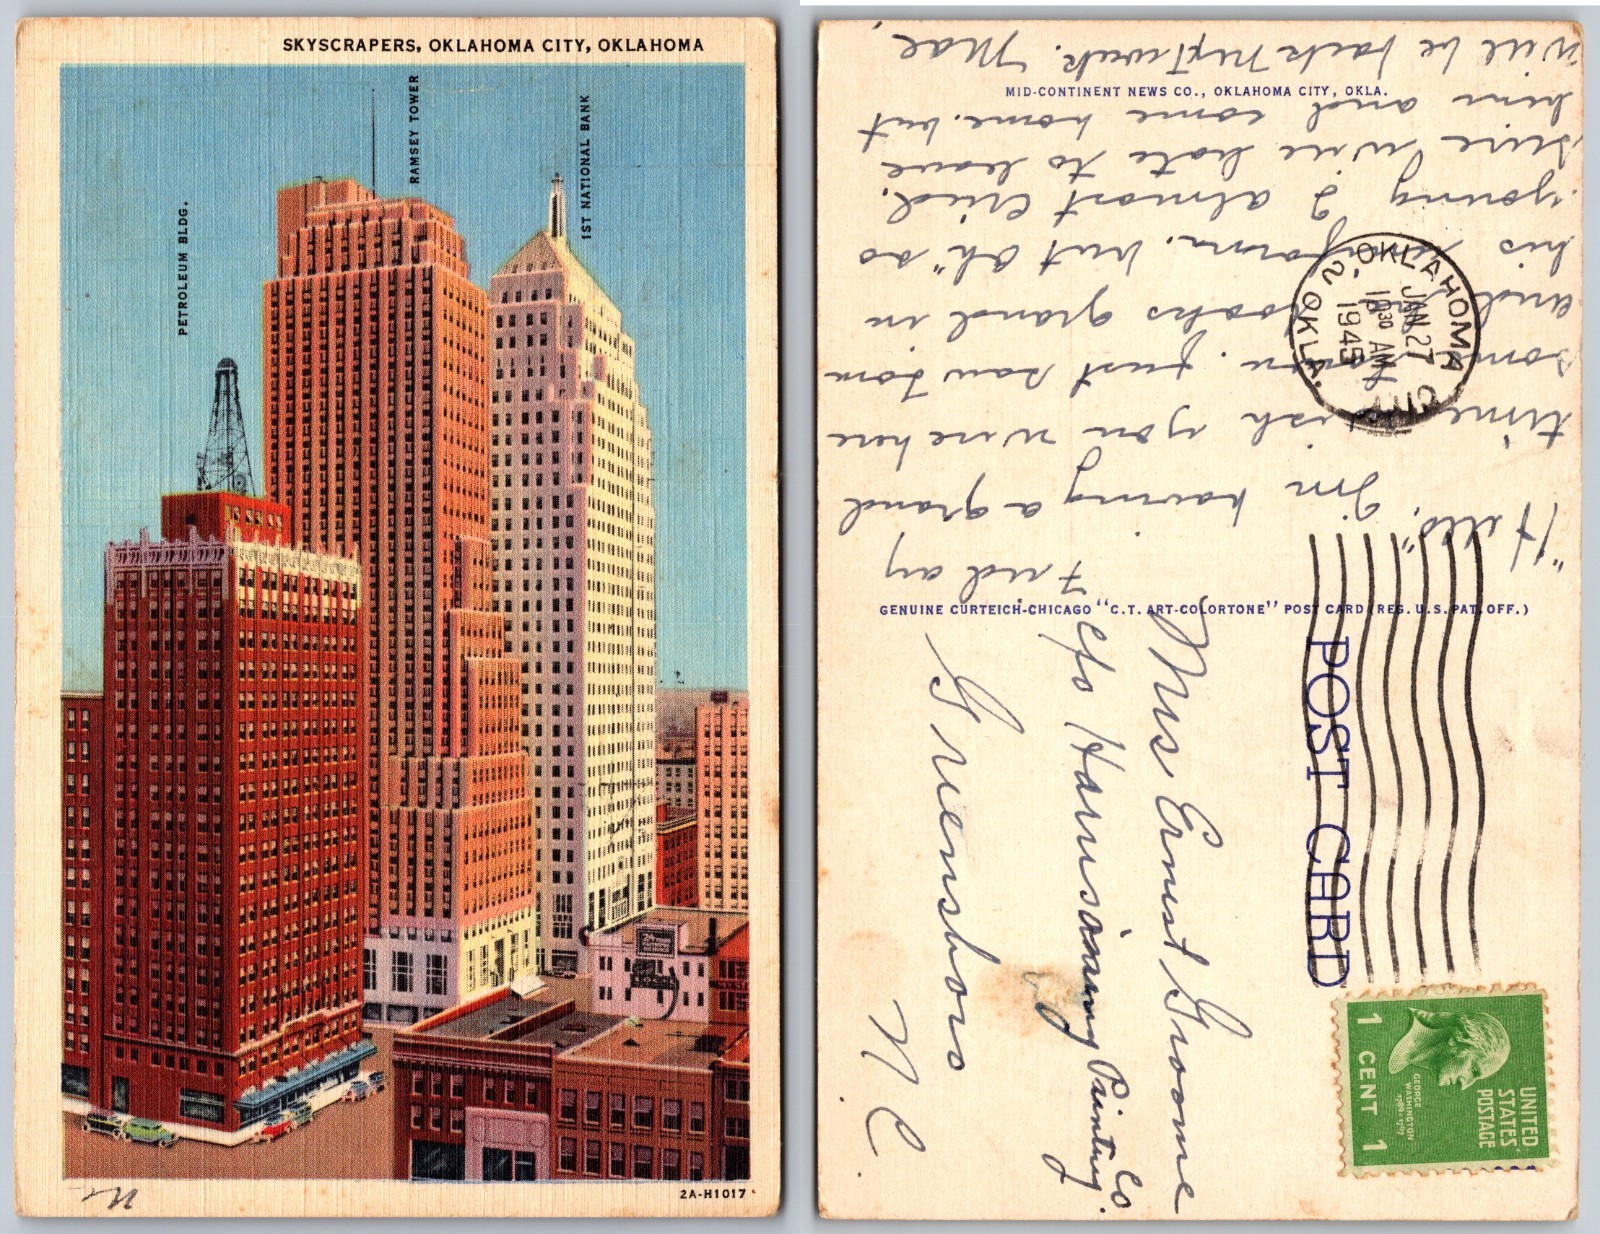 SKYSCRAPERS, OKLAHOMA CITY, OKLAHOMA
PETROLEUM BLDG.
RAMSEY TOWER
1ST NATIONAL BANK
2A-H1017
Friday
"Hello", I'm having a grand
time, wish you were here
some fun. Just saw Tom
and looks grand in
his uniform, but Oh" so
young I almost cried.
sure
hate to leave
him and come home. but
will be back next week. Mae,
MID-CONTINENT NEWS CO., OKLAHOMA CITY, OKLA.
GENUINE CURTEICH-CHICAGO "C.T. ART-COLORTONE" POST CARD (REG. U.S. PAT. OFF.)
POST CARD
OKLAHOMA CITY
2, OKLA.
JAN 27
10 30 AM
1945
UNITED
STATES
POSTAGE
GEORGE
WASHINGTON
1789-1797
1 CENT 1
Mrs Ernest Groome
c/o Harrison Printing Co.
Greensboro
N C.